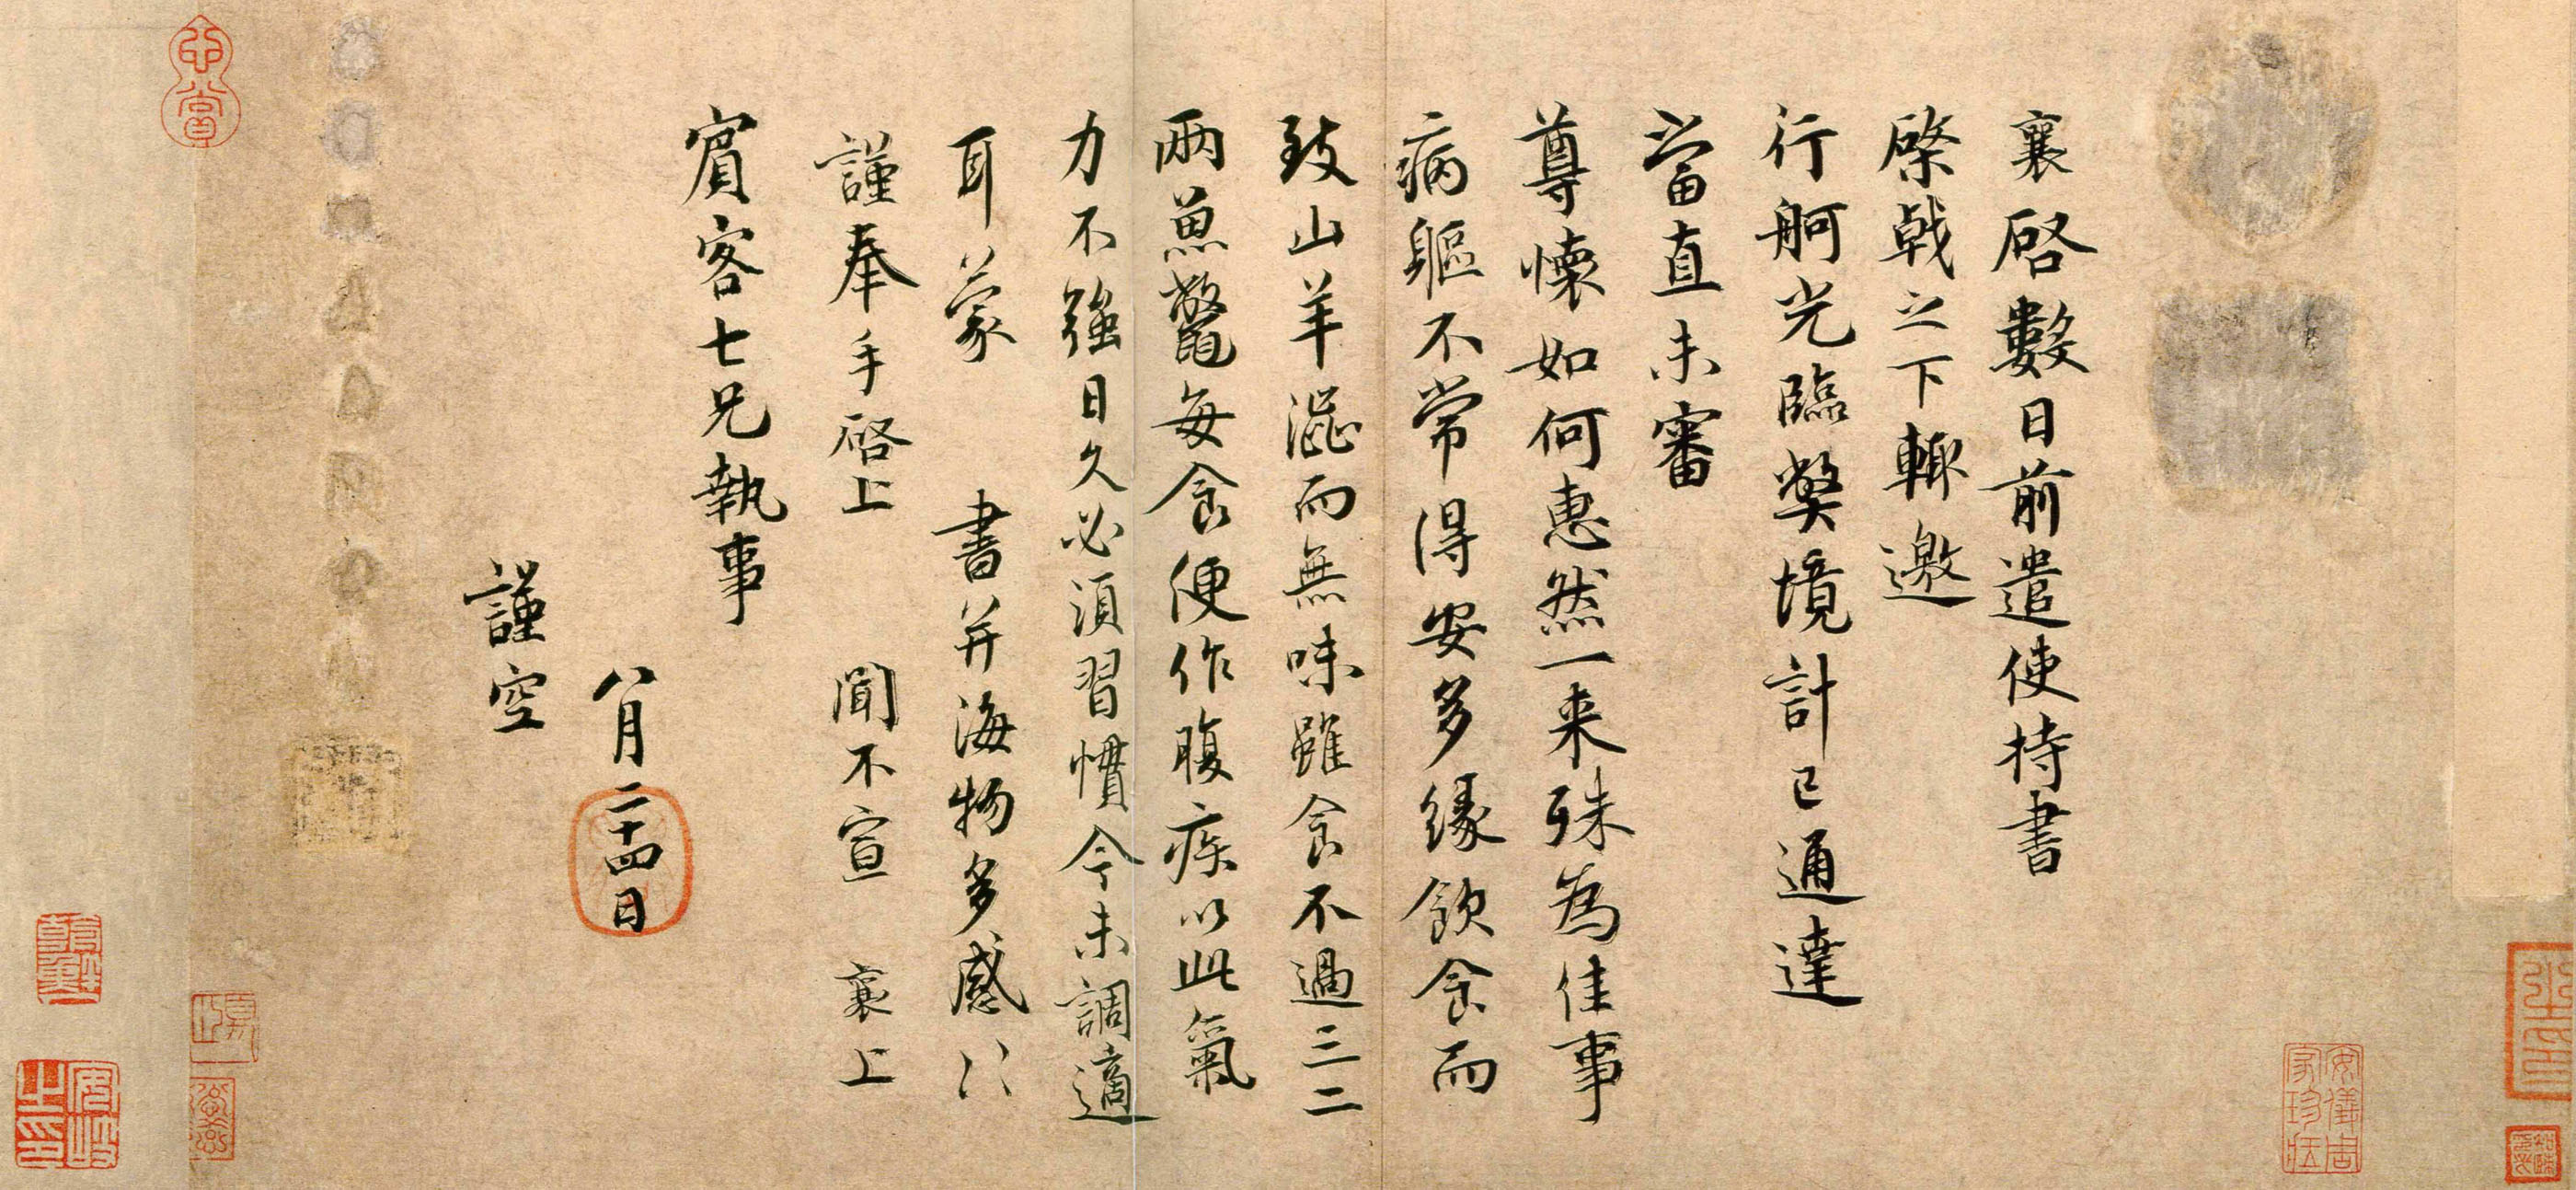 襄啓數日前遣使持書
棨戟之下輙邀
行舸光臨弊境計已通達
當直未審
尊懷如何惠然一来殊為佳事
病軀不常得安多緣飲食而
致山羊澀而無味雖食不過三二
兩魚鱉每食便作腹疾以此氣
力不強日久必須習慣今未調適
耳蒙 書并海物多感〻
謹奉手啓上 聞不宣 襄上
賓客七兄執事
八月二十四日
謹空
安儀周家珍藏